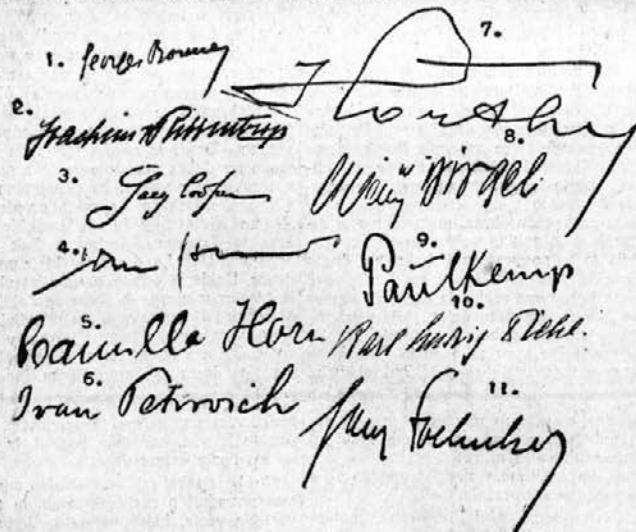 1. Georges Bonnet
2. Joachim v Ribbentrop
3. Gary Cooper
4.
5. Camilla Horn
6. Ivan Petrovich
7.
8. Willy Birgel
9. Paul Kemp
10. Karl Ludwig Diehl.
11.